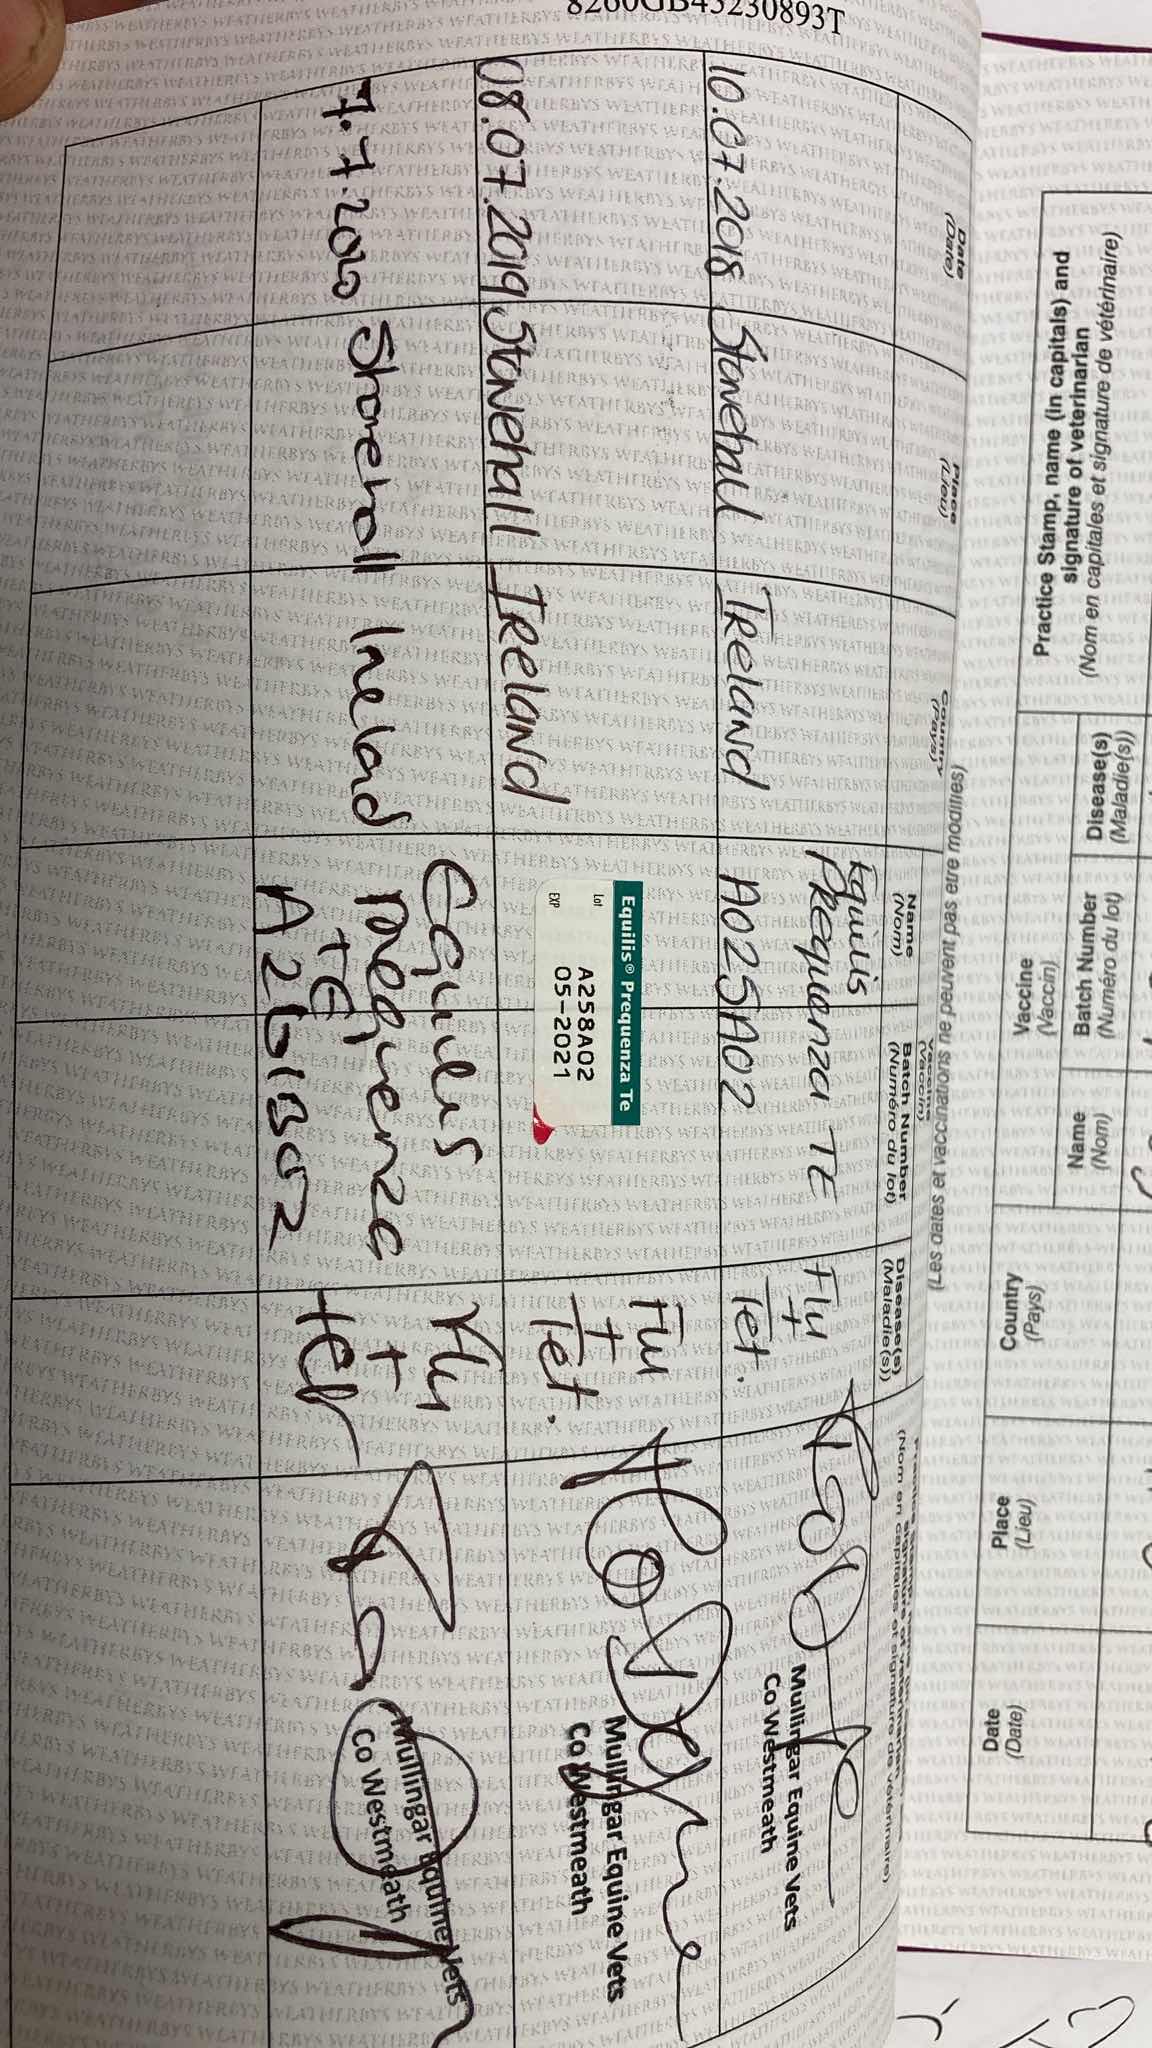 (Les dates et vaccinations ne peuvent pas etre modifiés)
Date
(Date)
Place
(Lieu)
Country
(Pays)
Vaccine
(Vaccin)
Name
(Nom)
Batch Number
(Numéro du lot)
Disease(s)
(Maladie(s))
(Nom en capitales et signature de vétérinaire)
10.07.2018
Stonehall
IReland
Equilis
PRequenza TE
A025A02
Flu
+
Tet.
Mullingar Equine Vets
Co Westmeath
08.07.2019
Stonehall
IReland
Equilis® Prequenza Te
Lot A258A02
EXP 05-2021
Flu
+
Tet.
Mullingar Equine Vets
Co Westmeath
7.7.2020
Stonehall
Ireland
Equilis
Prequenza
TE
A261B02
Flu
+
Tet
Mullingar Equine Vets
Co Westmeath
Practice Stamp, name (in capitals) and
signature of veterinarian
(Nom en capitales et signature de vétérinaire)
Vaccine
(Vaccin)
Disease(s)
(Maladie(s))
Batch Number
(Numéro du lot)
Name
(Nom)
Country
(Pays)
Place
(Lieu)
Date
(Date)
WEATHERBYS